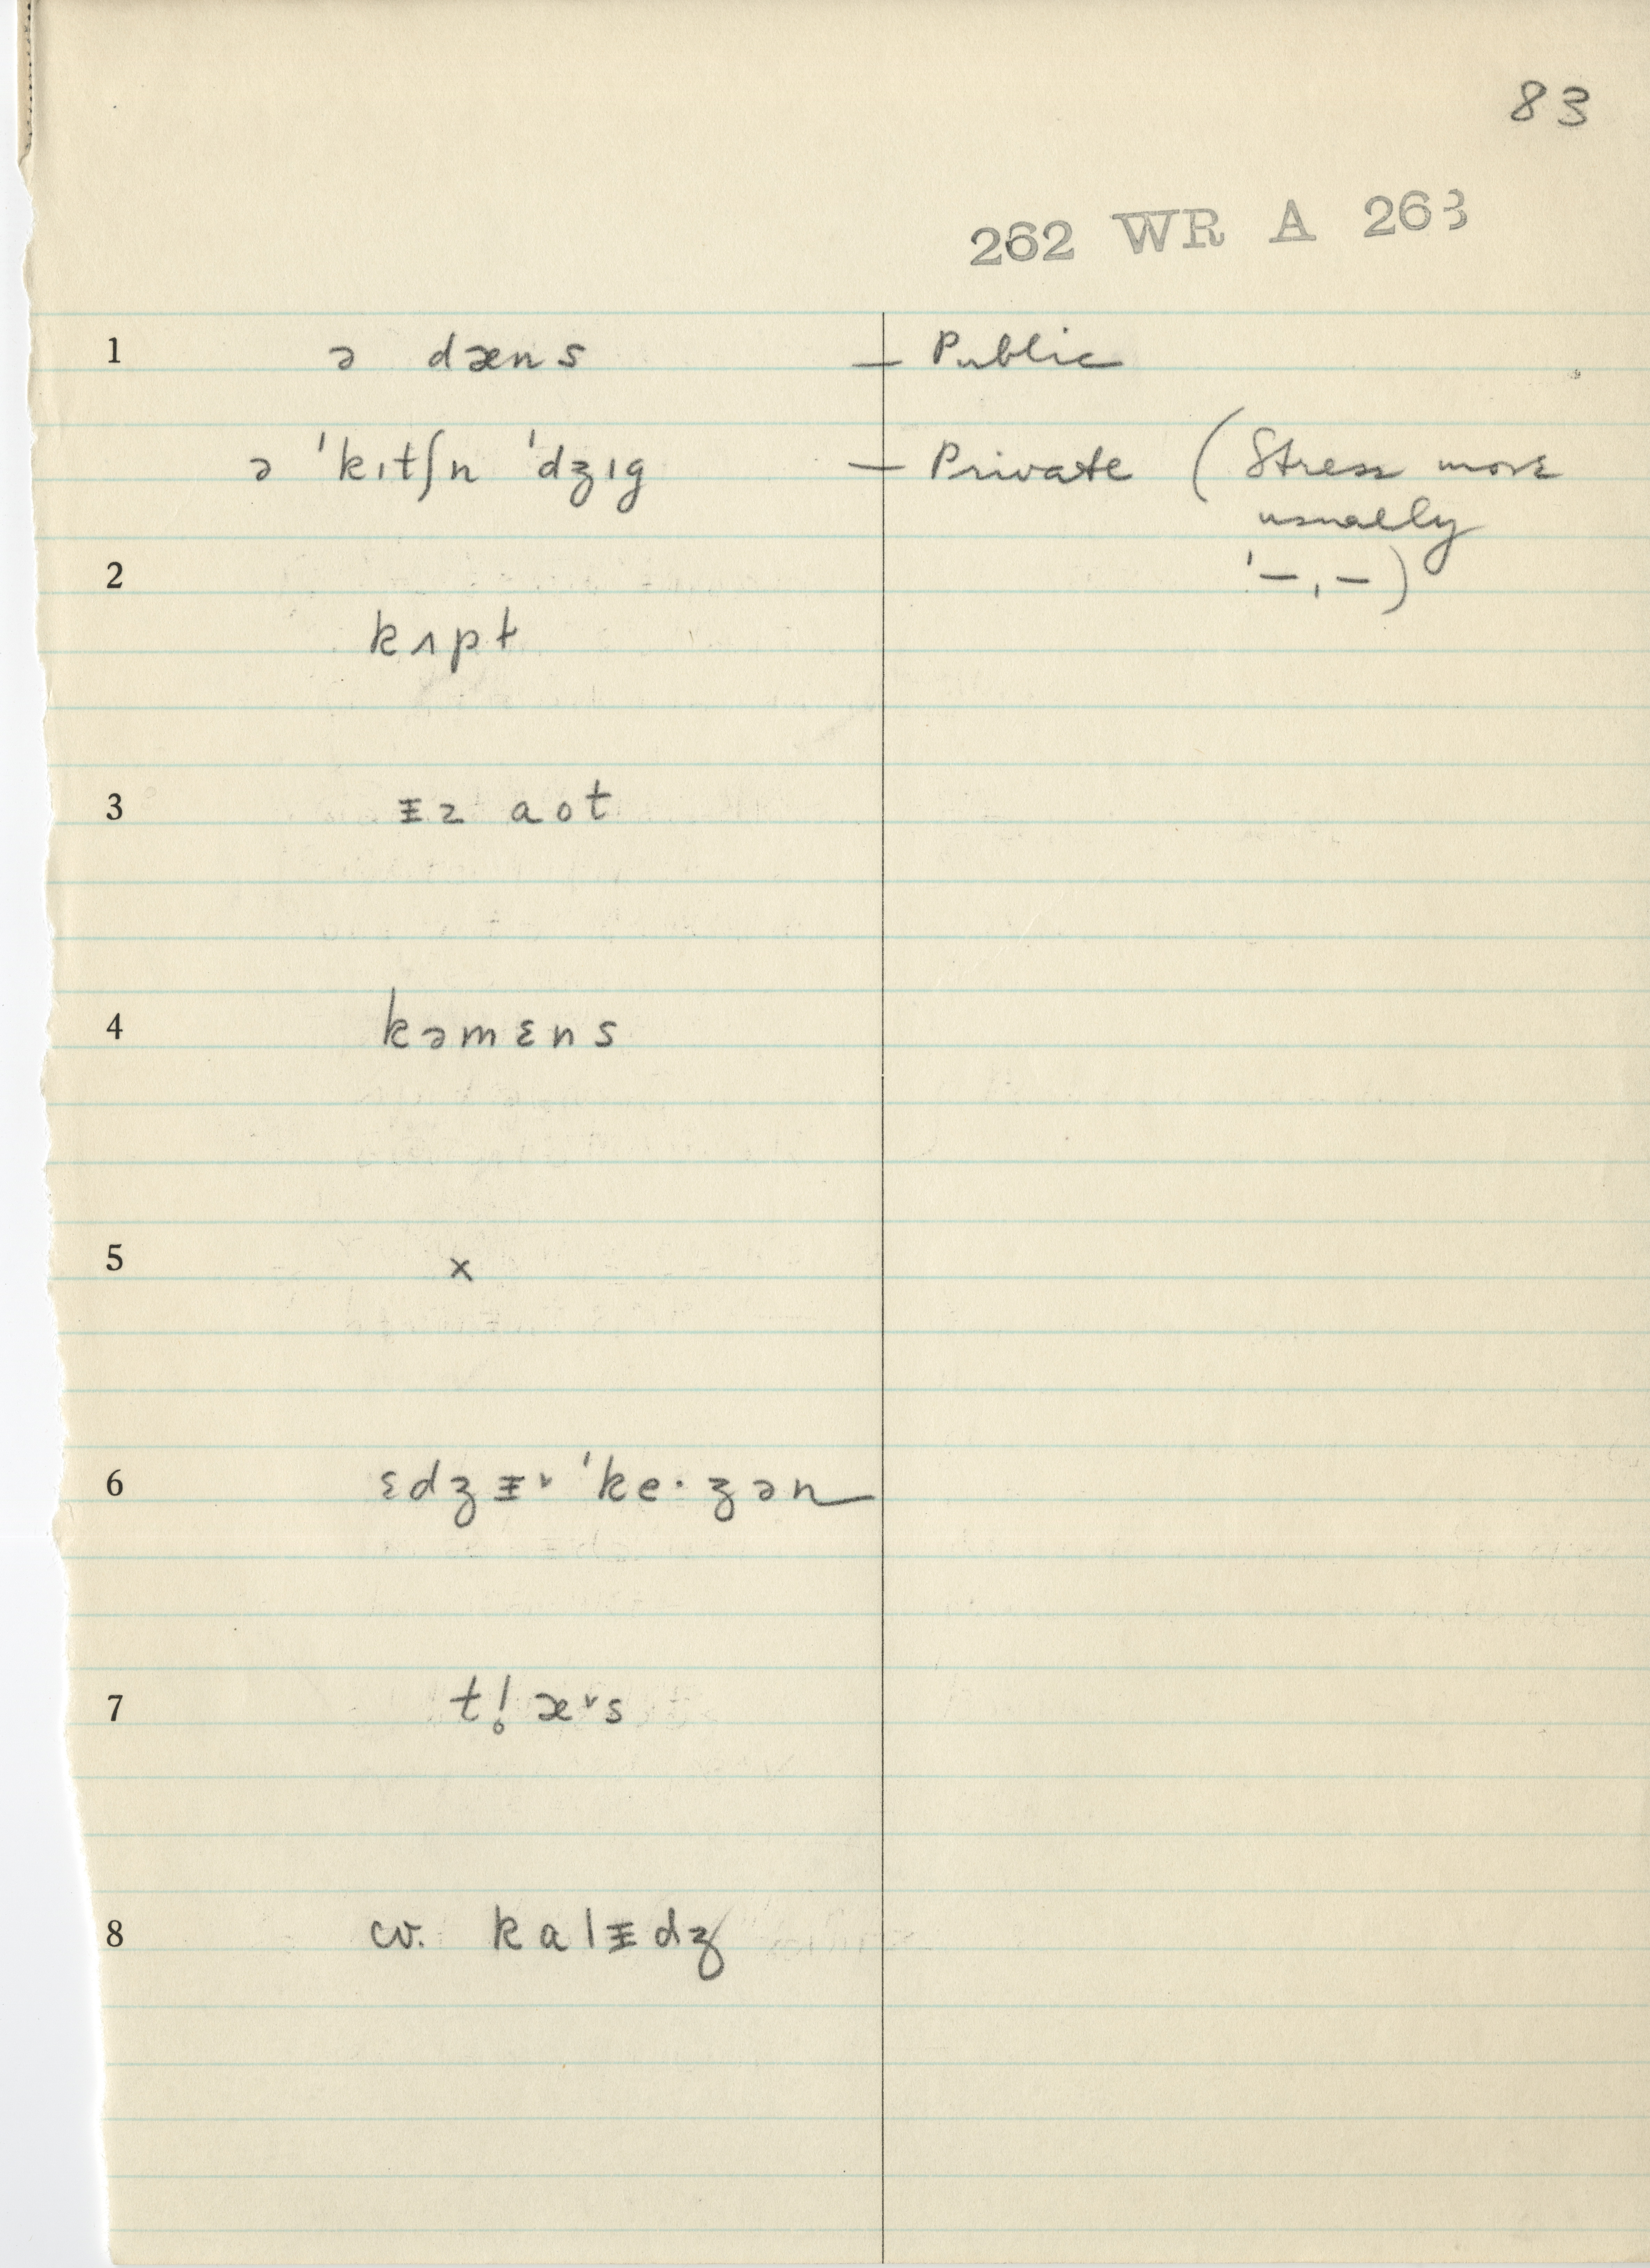 83
262 WR A 263
1 ə dæns — Public
ə ˈkɪtʃn ˈdʒɪg — Private (Stress more
usually
2 ˈ–ˌ–)
kʌpt
3 ᵻz aot
4 kəmɛns
5 x
6 ɛdʒᵻ˅ ˈke·ʒən
7 tl̥æ˅s
8 cv. kalᵻdʒ